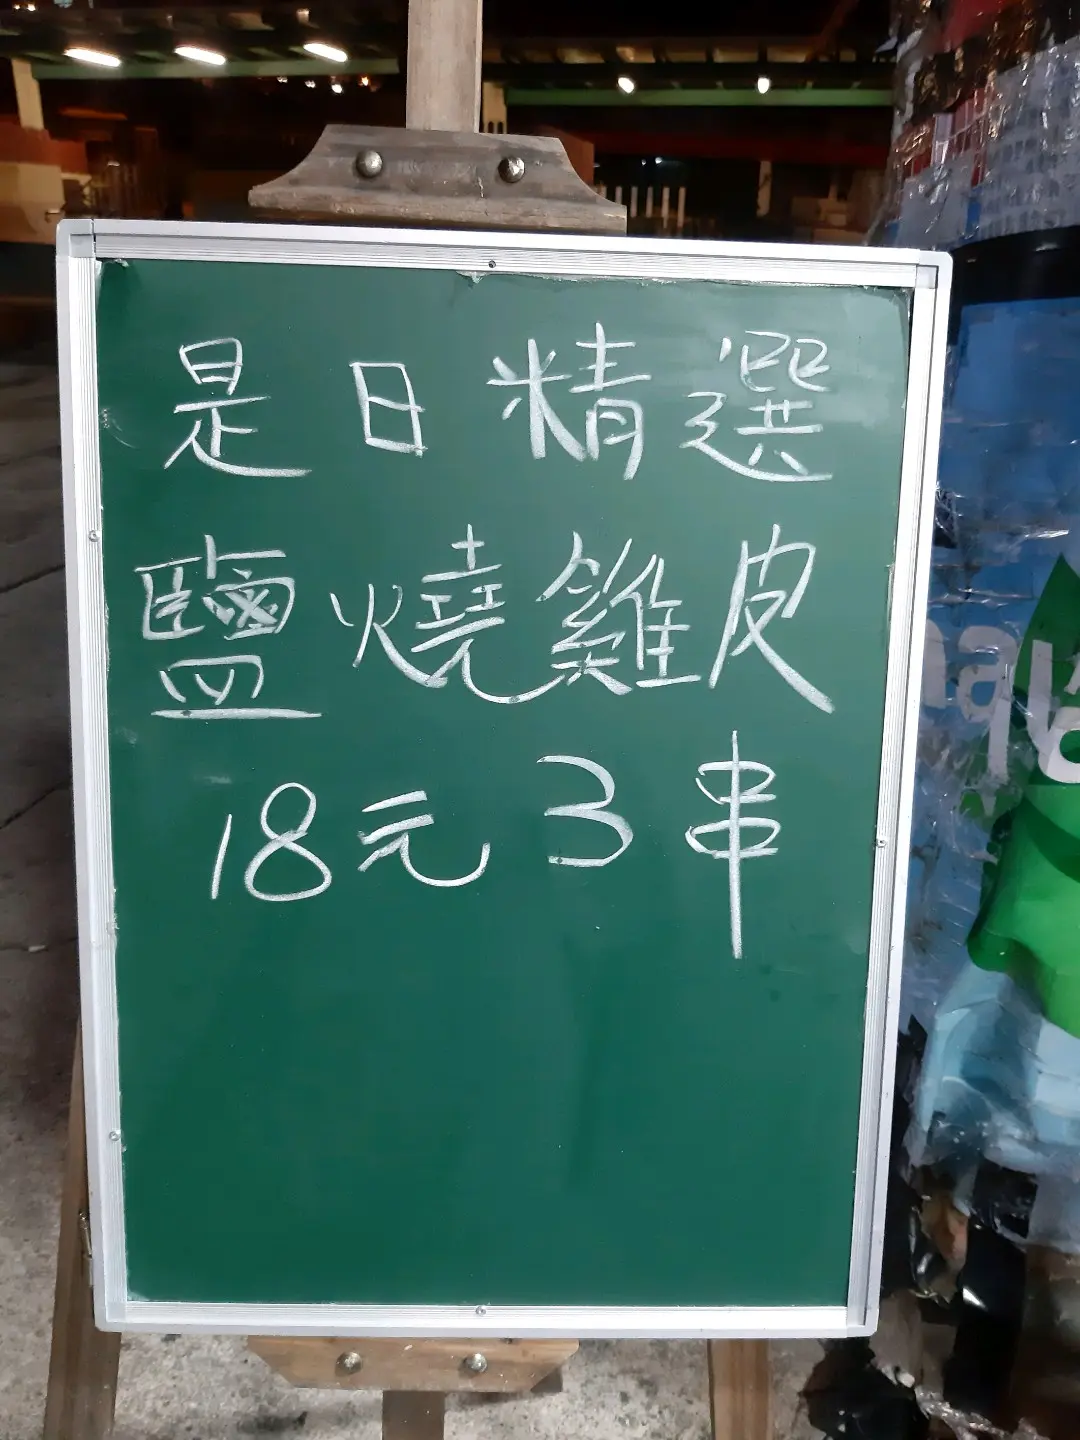 是日精選
鹽燒雞皮
18元 3串